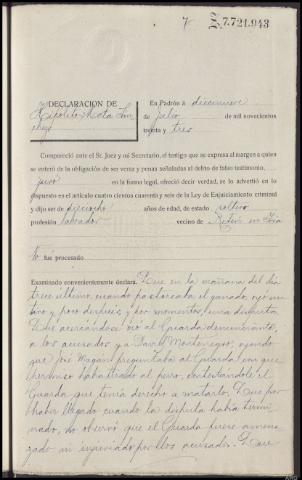 7
7.721.943
DECLARACION DE
Hipolito Mata Sán
chez
En Padrón á diecinueve
de julio de mil novecientos
treinta y tres
Compareció ante el Sr. Juez y mi Secretario, el testigo que se expresa al margen a quien
se enteró de la obligación de ser veraz y penas señaladas al delito de falso testimonio,
juró en la forma legal, ofreció decir verdad, se lo advertió en lo
dispuesto en el artículo cuatro cientos cuarenta y seis de la Ley de Enjuiciamiento criminal
y dijo ser de dieciocho años de edad, de estado soltero
profesión labrador vecino de
fue procesado
Examinado convenientemente declara. Que en la mañana del dia
trece ultimo, cuando pastoreaba el ganado, oyó un
tiro y poco despues, y por momentos, una disputa
Que acercandose vió al Guarda denunciante, a
los acusados y a David Montenegro, oyendo
que José Magan preguntaba al Guarda con que
derecho habia tirado al perro, contestandole el
Guarda que tenia derecho a matarlo. Que por
haber llegado cuando la disputa habia termi
nado, no observó que el Guarda fuese amena
zado ni injuriado por los acusados. Que